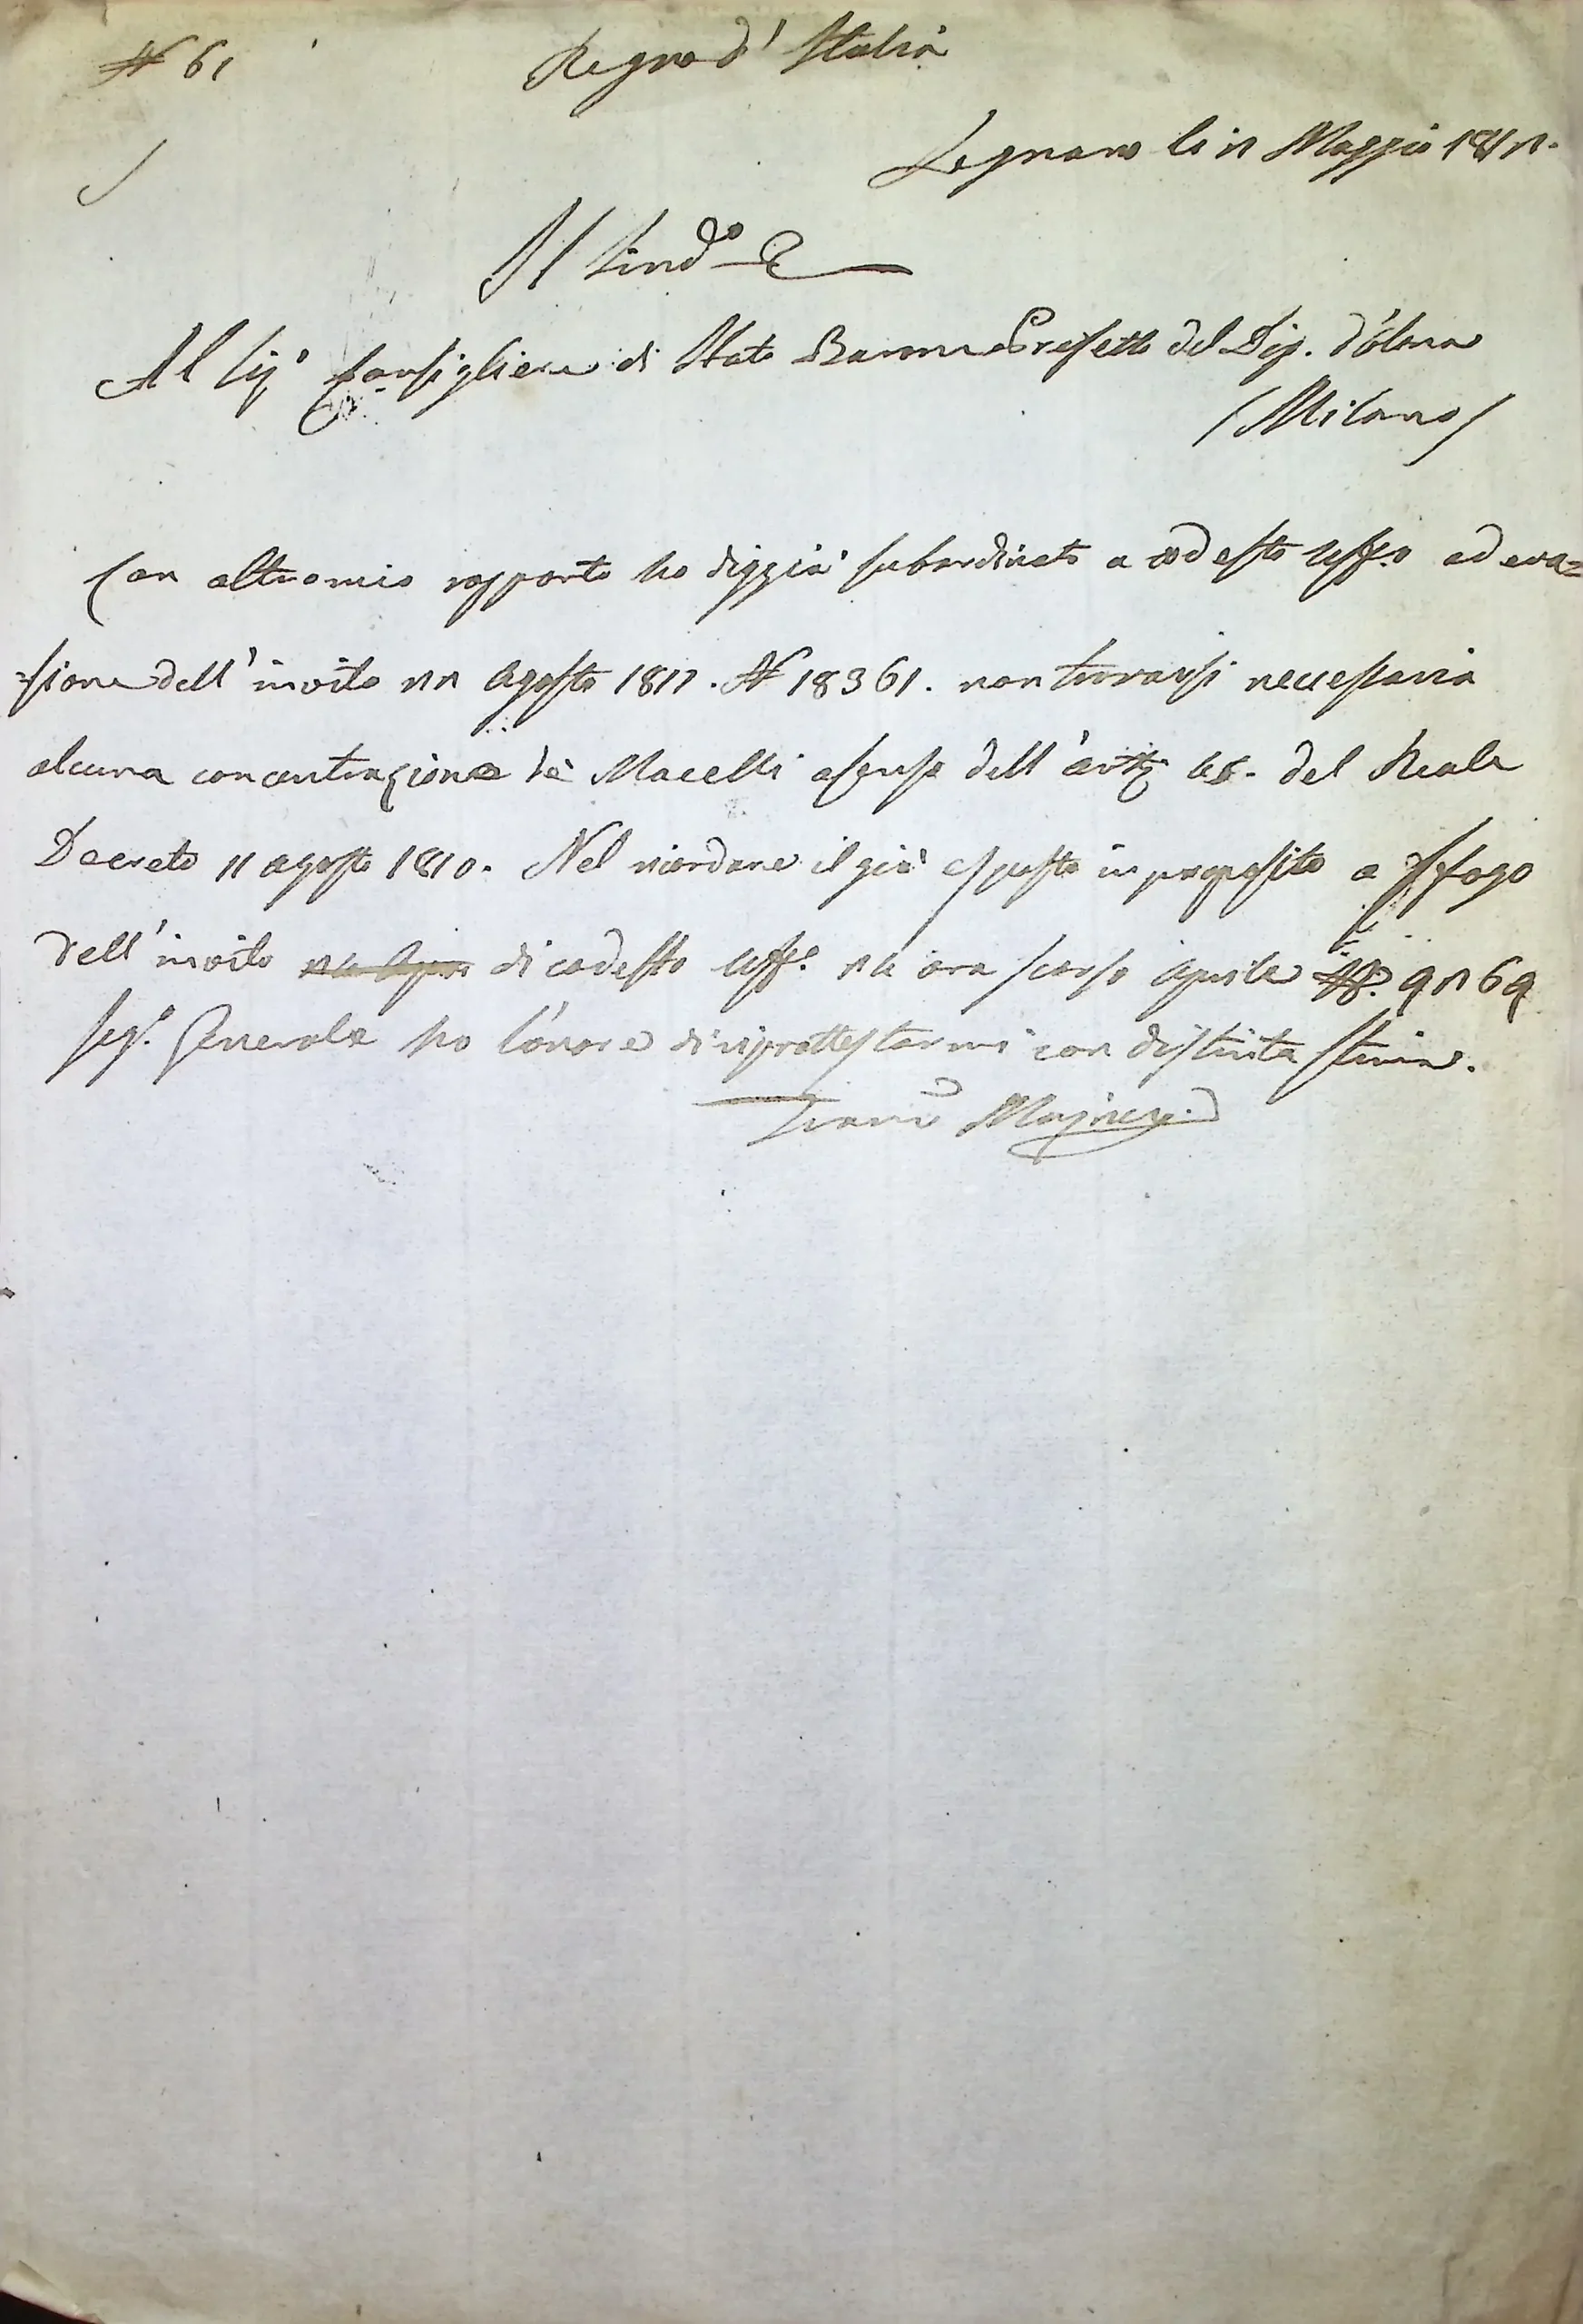 N 61
Regno d' Italia
Legnano li 12 Maggio 1812.
Il Sind.o
Al Sig.r Consigliere di Stato Barone Prefetto del Dip. d'Olona
/Milano/
Con altro mio rapporto ho diggià subordinato a codesto Uff.o ad eva=
=sione dell' invito 22 Agosto 1811. N 18361. non trovarsi necessaria
alcuna concentrazione de' Macelli a senso dell' art. del Reale
Decreto 11 agosto 1810. Nel ricordare il già esposto in proposito a sfogo
dell' invito di codesto Uff.o ora scorso Aprile N. 9269
Seg.a Generale ho l'onore di riprottestarmi con distinta stima.